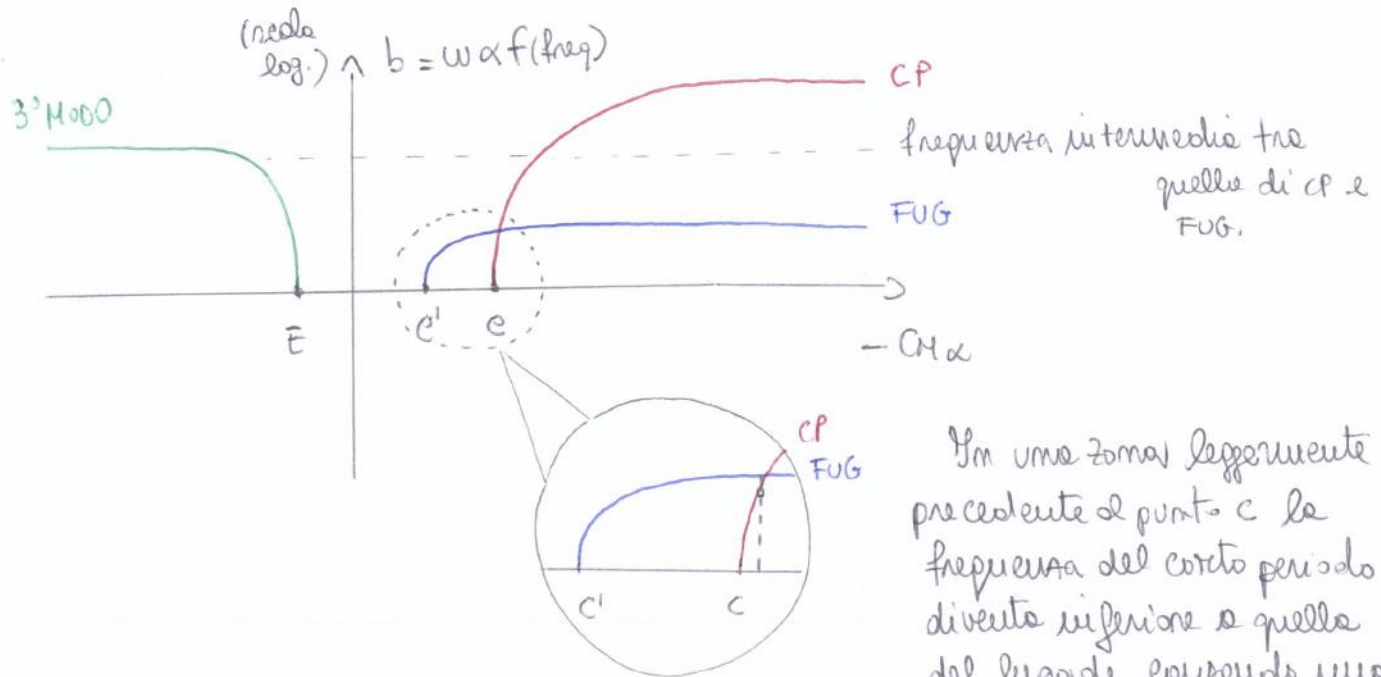 (scala
log.) b = ω α f (freq)
3° MODO
CP
frequenza intermedia tra
quella di CP e
FUG.
FUG
Ē
C'
C
- CMα
CP
FUG
C'
C
In una zona leggermente
precedente al punto C la
frequenza del corto periodo
diventa inferiore a quella